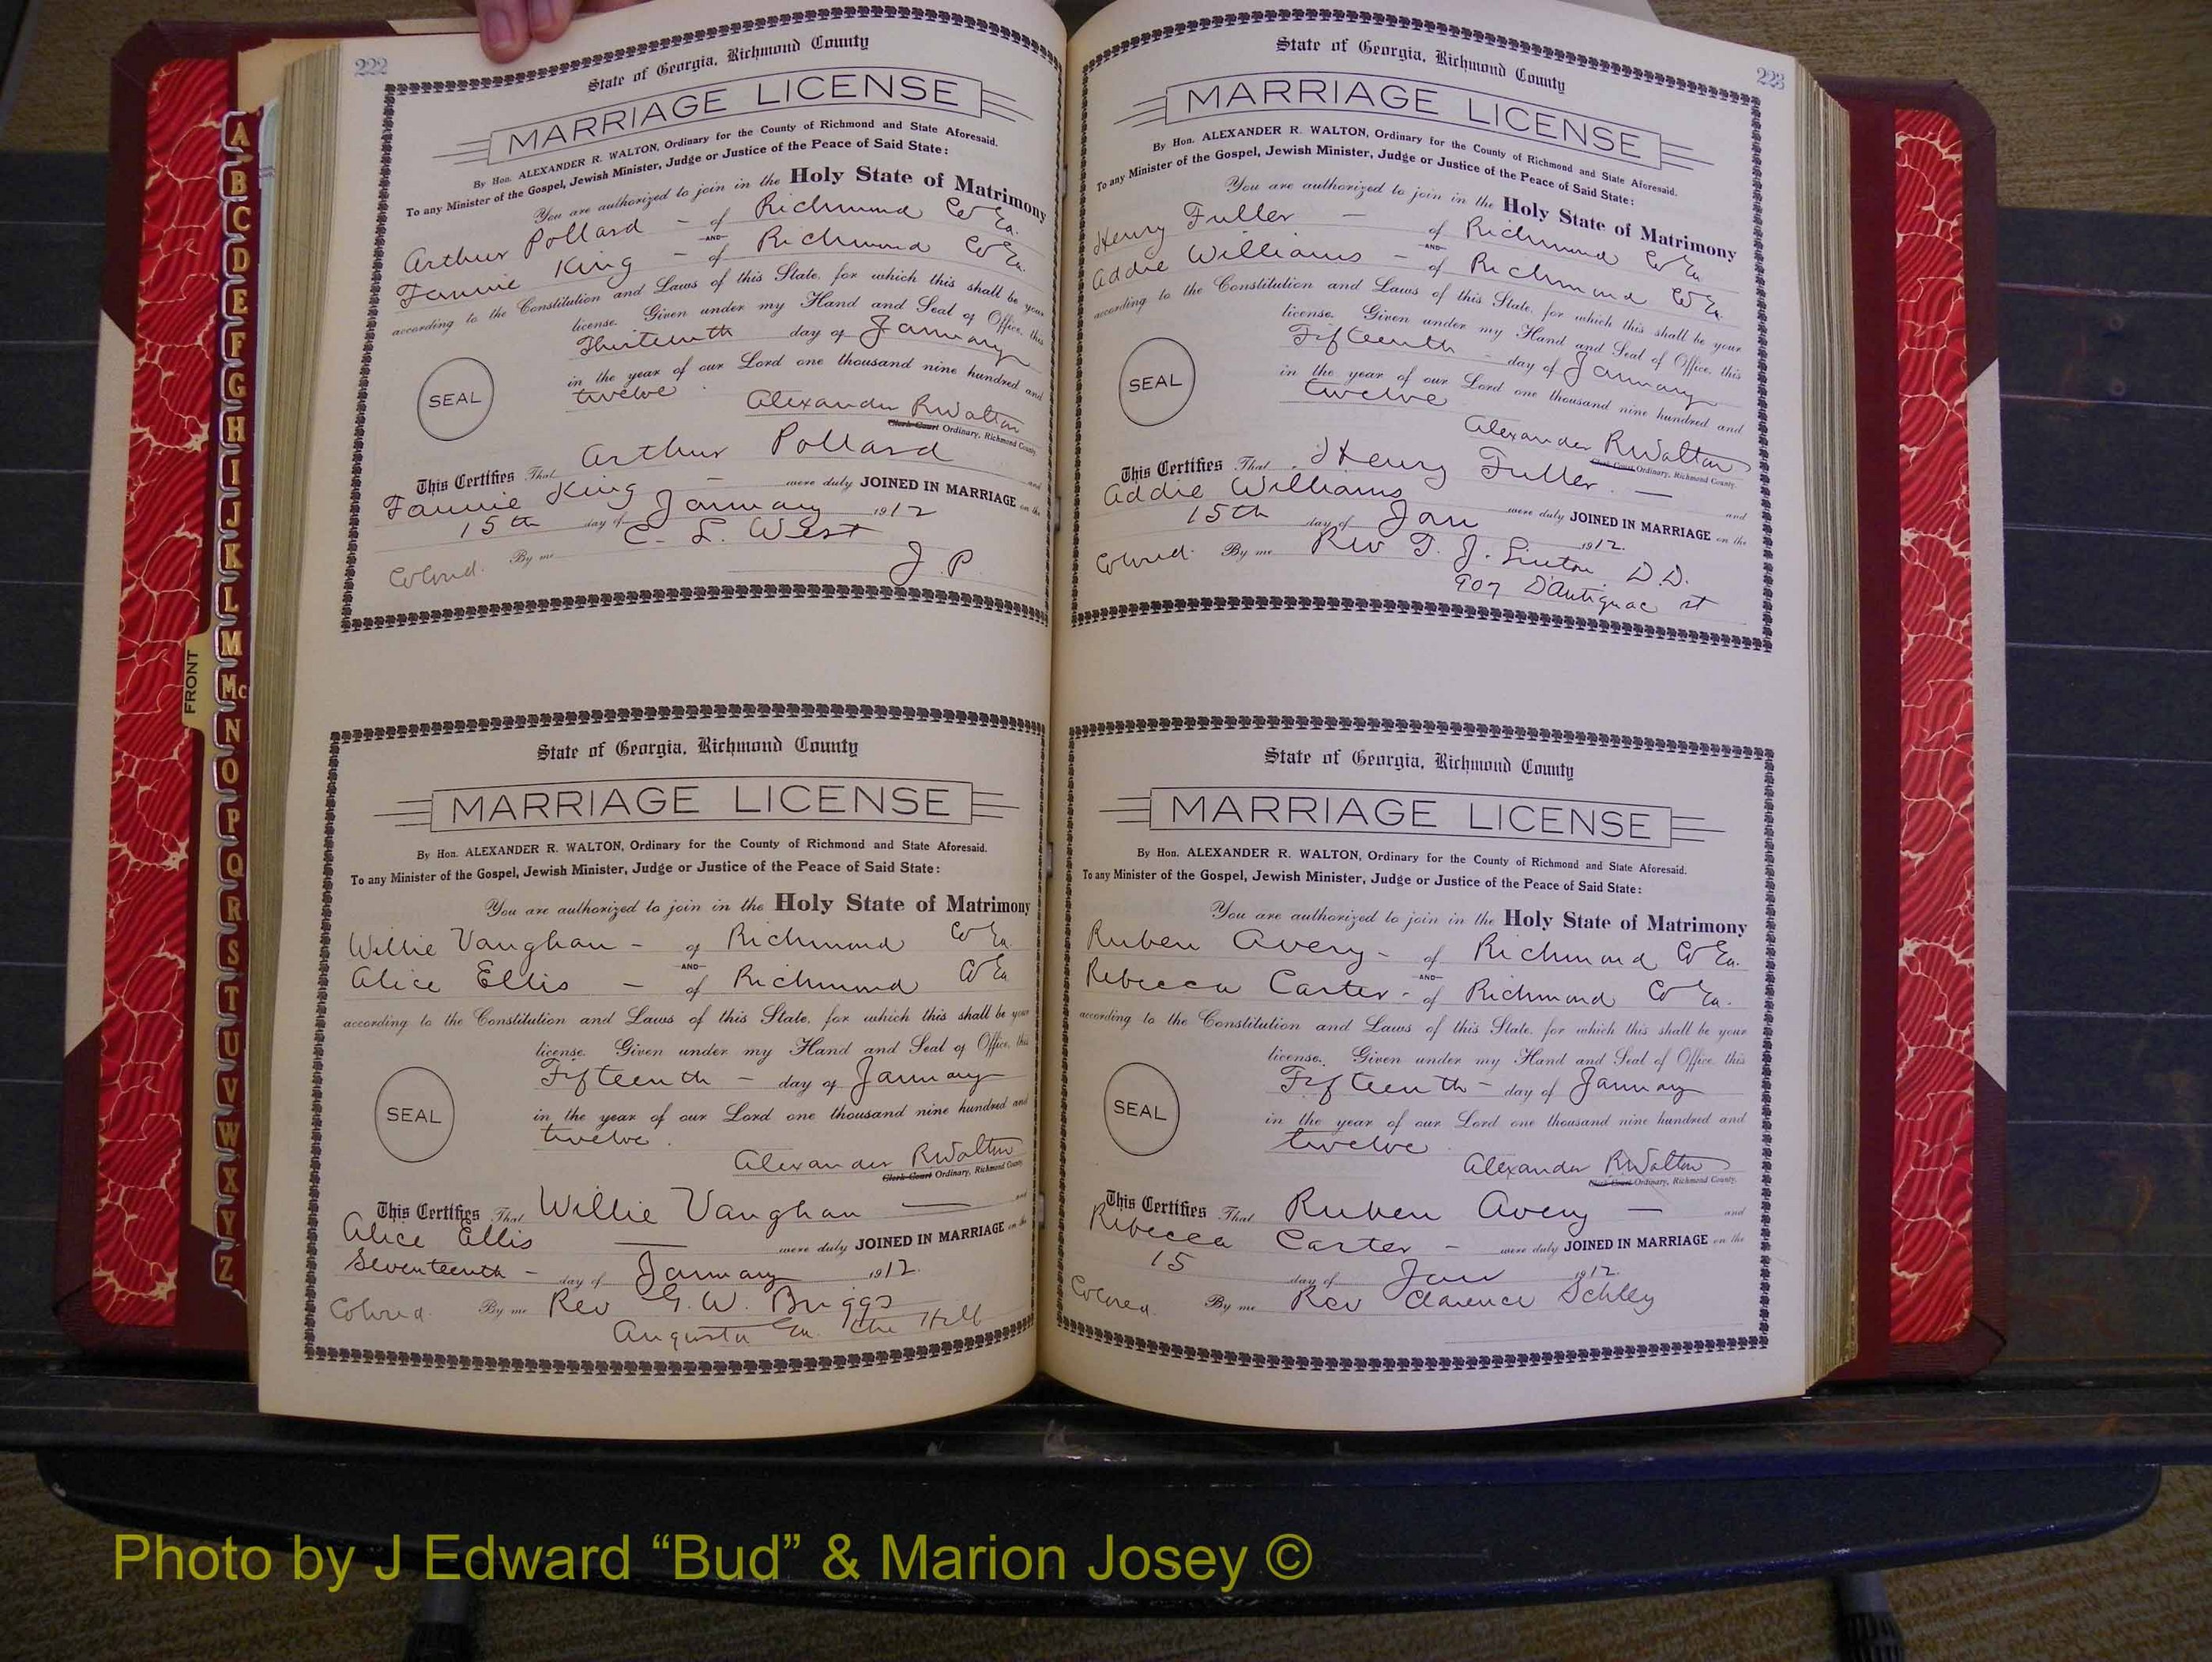 222
State of Georgia, Richmond County
MARRIAGE LICENSE
By Hon. ALEXANDER R. WALTON, Ordinary for the County of Richmond and State Aforesaid.
To any Minister of the Gospel, Jewish Minister, Judge or Justice of the Peace of Said State:
You are authorized to join in the Holy State of Matrimony
Arthur Pollard - of Richmond Co Ga.
AND
Fannie King - of Richmond Co Ga.
according to the Constitution and Laws of this State, for which this shall be your
license. Given under my Hand and Seal of Office, this
Thirteenth day of January
in the year of our Lord one thousand nine hundred and
twelve
SEAL
Alexander R Walton
Clerk Court Ordinary, Richmond County
This Certifies That Arthur Pollard and
Fannie King - were duly JOINED IN MARRIAGE on the
15th day of January 1912
By me C. L. West
Colored. J. P.
State of Georgia, Richmond County
MARRIAGE LICENSE
By Hon. ALEXANDER R. WALTON, Ordinary for the County of Richmond and State Aforesaid.
To any Minister of the Gospel, Jewish Minister, Judge or Justice of the Peace of Said State:
You are authorized to join in the Holy State of Matrimony
Willie Vaughan - of Richmond Co Ga.
AND
Alice Ellis - of Richmond Co Ga
according to the Constitution and Laws of this State, for which this shall be your
license. Given under my Hand and Seal of Office, this
Fifteenth - day of January
in the year of our Lord one thousand nine hundred and
twelve.
SEAL
Alexander R Walton
Clerk Court Ordinary, Richmond County
This Certifies That Willie Vaughan — and
Alice Ellis — were duly JOINED IN MARRIAGE on the
Seventeenth - day of January 1912.
Colored. By me Rev G. W. Briggs
Augusta Ga. The Hill
223
State of Georgia, Richmond County
MARRIAGE LICENSE
By Hon. ALEXANDER R. WALTON, Ordinary for the County of Richmond and State Aforesaid.
To any Minister of the Gospel, Jewish Minister, Judge or Justice of the Peace of Said State:
You are authorized to join in the Holy State of Matrimony
Henry Fuller - of Richmond Co Ga
AND
Addie Williams - of Richmond Co Ga.
according to the Constitution and Laws of this State, for which this shall be your
license. Given under my Hand and Seal of Office, this
Fifteenth - day of January
in the year of our Lord one thousand nine hundred and
twelve
SEAL
Alexander R Walton
Clerk Court Ordinary, Richmond County.
This Certifies That Henry Fuller. — and
Addie Williams were duly JOINED IN MARRIAGE on the
15th day of Jan 1912.
Colored. By me Rev T. J. Linton D.D.
907 D'Antignac st
State of Georgia, Richmond County
MARRIAGE LICENSE
By Hon. ALEXANDER R. WALTON, Ordinary for the County of Richmond and State Aforesaid.
To any Minister of the Gospel, Jewish Minister, Judge or Justice of the Peace of Said State:
You are authorized to join in the Holy State of Matrimony
Ruben Avery - of Richmond Co Ga.
AND
Rebecca Carter - of Richmond Co Ga.
according to the Constitution and Laws of this State, for which this shall be your
license. Given under my Hand and Seal of Office, this
Fifteenth - day of January
in the year of our Lord one thousand nine hundred and
twelve
SEAL
Alexander R Walton
Clerk Court Ordinary, Richmond County.
This Certifies That Ruben Avery — and
Rebecca Carter - were duly JOINED IN MARRIAGE on the
15 day of Jan 1912.
Colored. By me Rev Clarence Schley
FRONT
A
B
C
D
E
F
G
H
I
J
K
L
M
Mc
N
O
P
Q
R
S
T
U
V
W
X
Y
Z
Photo by J Edward “Bud” & Marion Josey ©